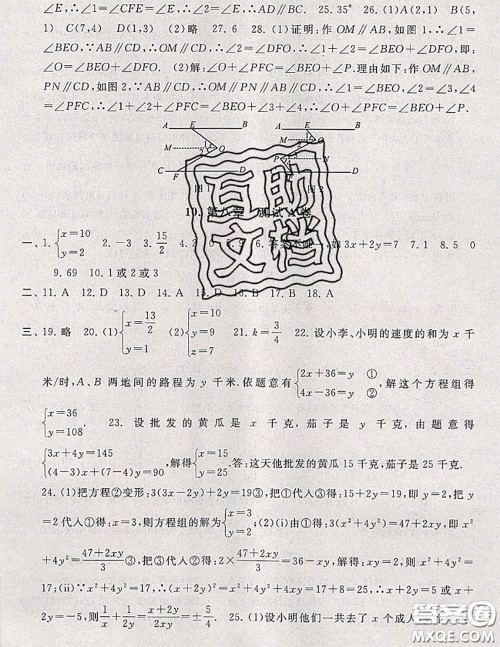 ∠E,∴∠1=∠CFE=∠E,∴∠1=∠2,∴∠E=∠2,∴AD∥BC. 25.35° 26.(1)A(2,1) B(5,
1) C(7,4) D(1,3) (2)略 27.6 28.(1)证明:作OM∥AB,如图1,∴∠1=
∠BEO,∵AB∥CD,∴OM∥CD,∴∠2=∠DFO,∴∠1+∠2=∠BEO+∠DFO,即:
∠O=∠BEO+∠DFO. (2)解:∠O+∠PFC=∠BEO+∠P.理由如下:作OM∥AB,
PN∥CD,如图2,∵AB∥CD,∴OM∥PN∥AB∥CD,∴∠1=∠BEO,∠2=∠3,∠4
=∠PFC,∴∠1+∠2+∠PFC=∠BEO+∠3+∠4,∴∠O+∠PFC=∠BEO+∠P.
A E B A E B
M O M
C F D D
互助
文档
10.第八章 测试A卷
一、1.{x=10 y=2 2.-3 3.15/2 4.2 6.答案不唯一,如3x+2y=7 7.1 8.5 0
9.69 10.1或2或3
二、11.A 12.D 13.D 14.A 15.D 17.B 18.A
三、19.略 20.(1){x=13/2 y=1 (2){x=10 y=9 z=7 21.k=3/4 22.设小李、小明的速度的和为x千
米/时,A、B两地间的路程为y千米.依题意有{2x+36=y ① 4x-36=y ②,解这个方程组得
{x=36 y=108. 23.设批发的黄瓜是x千克,茄子是y千克,由题意得
{3x+4y=145 (4-3)x+(7-4)y=90,解得{x=15 y=25.答:这天他批发的黄瓜15千克,茄子是25千克.
24.(1)把方程②变形:3(3x-2y)+2y=19③,把①代入③得:15+2y=19,即y=2,把y
=2代入①得:x=3,则方程组的解为{x=3 y=2;(2)(i)由①得:3(x²+4y²)=47+2xy,即x²
+4y²=(47+2xy)/3③,把③代入②得:2×(47+2xy)/3=36-xy,解得:xy=2,则x²+4y²=
17;(ii)∵x²+4y²=17,∴(x+2y)²=x²+4y²+4xy=17+8=25,∴x+2y=5或x+
2y=-5,则1/x+1/2y=(x+2y)/2xy=±5/4. 25.(1)设小明他们一共去了x个成人
答案圈
MXQE.COM